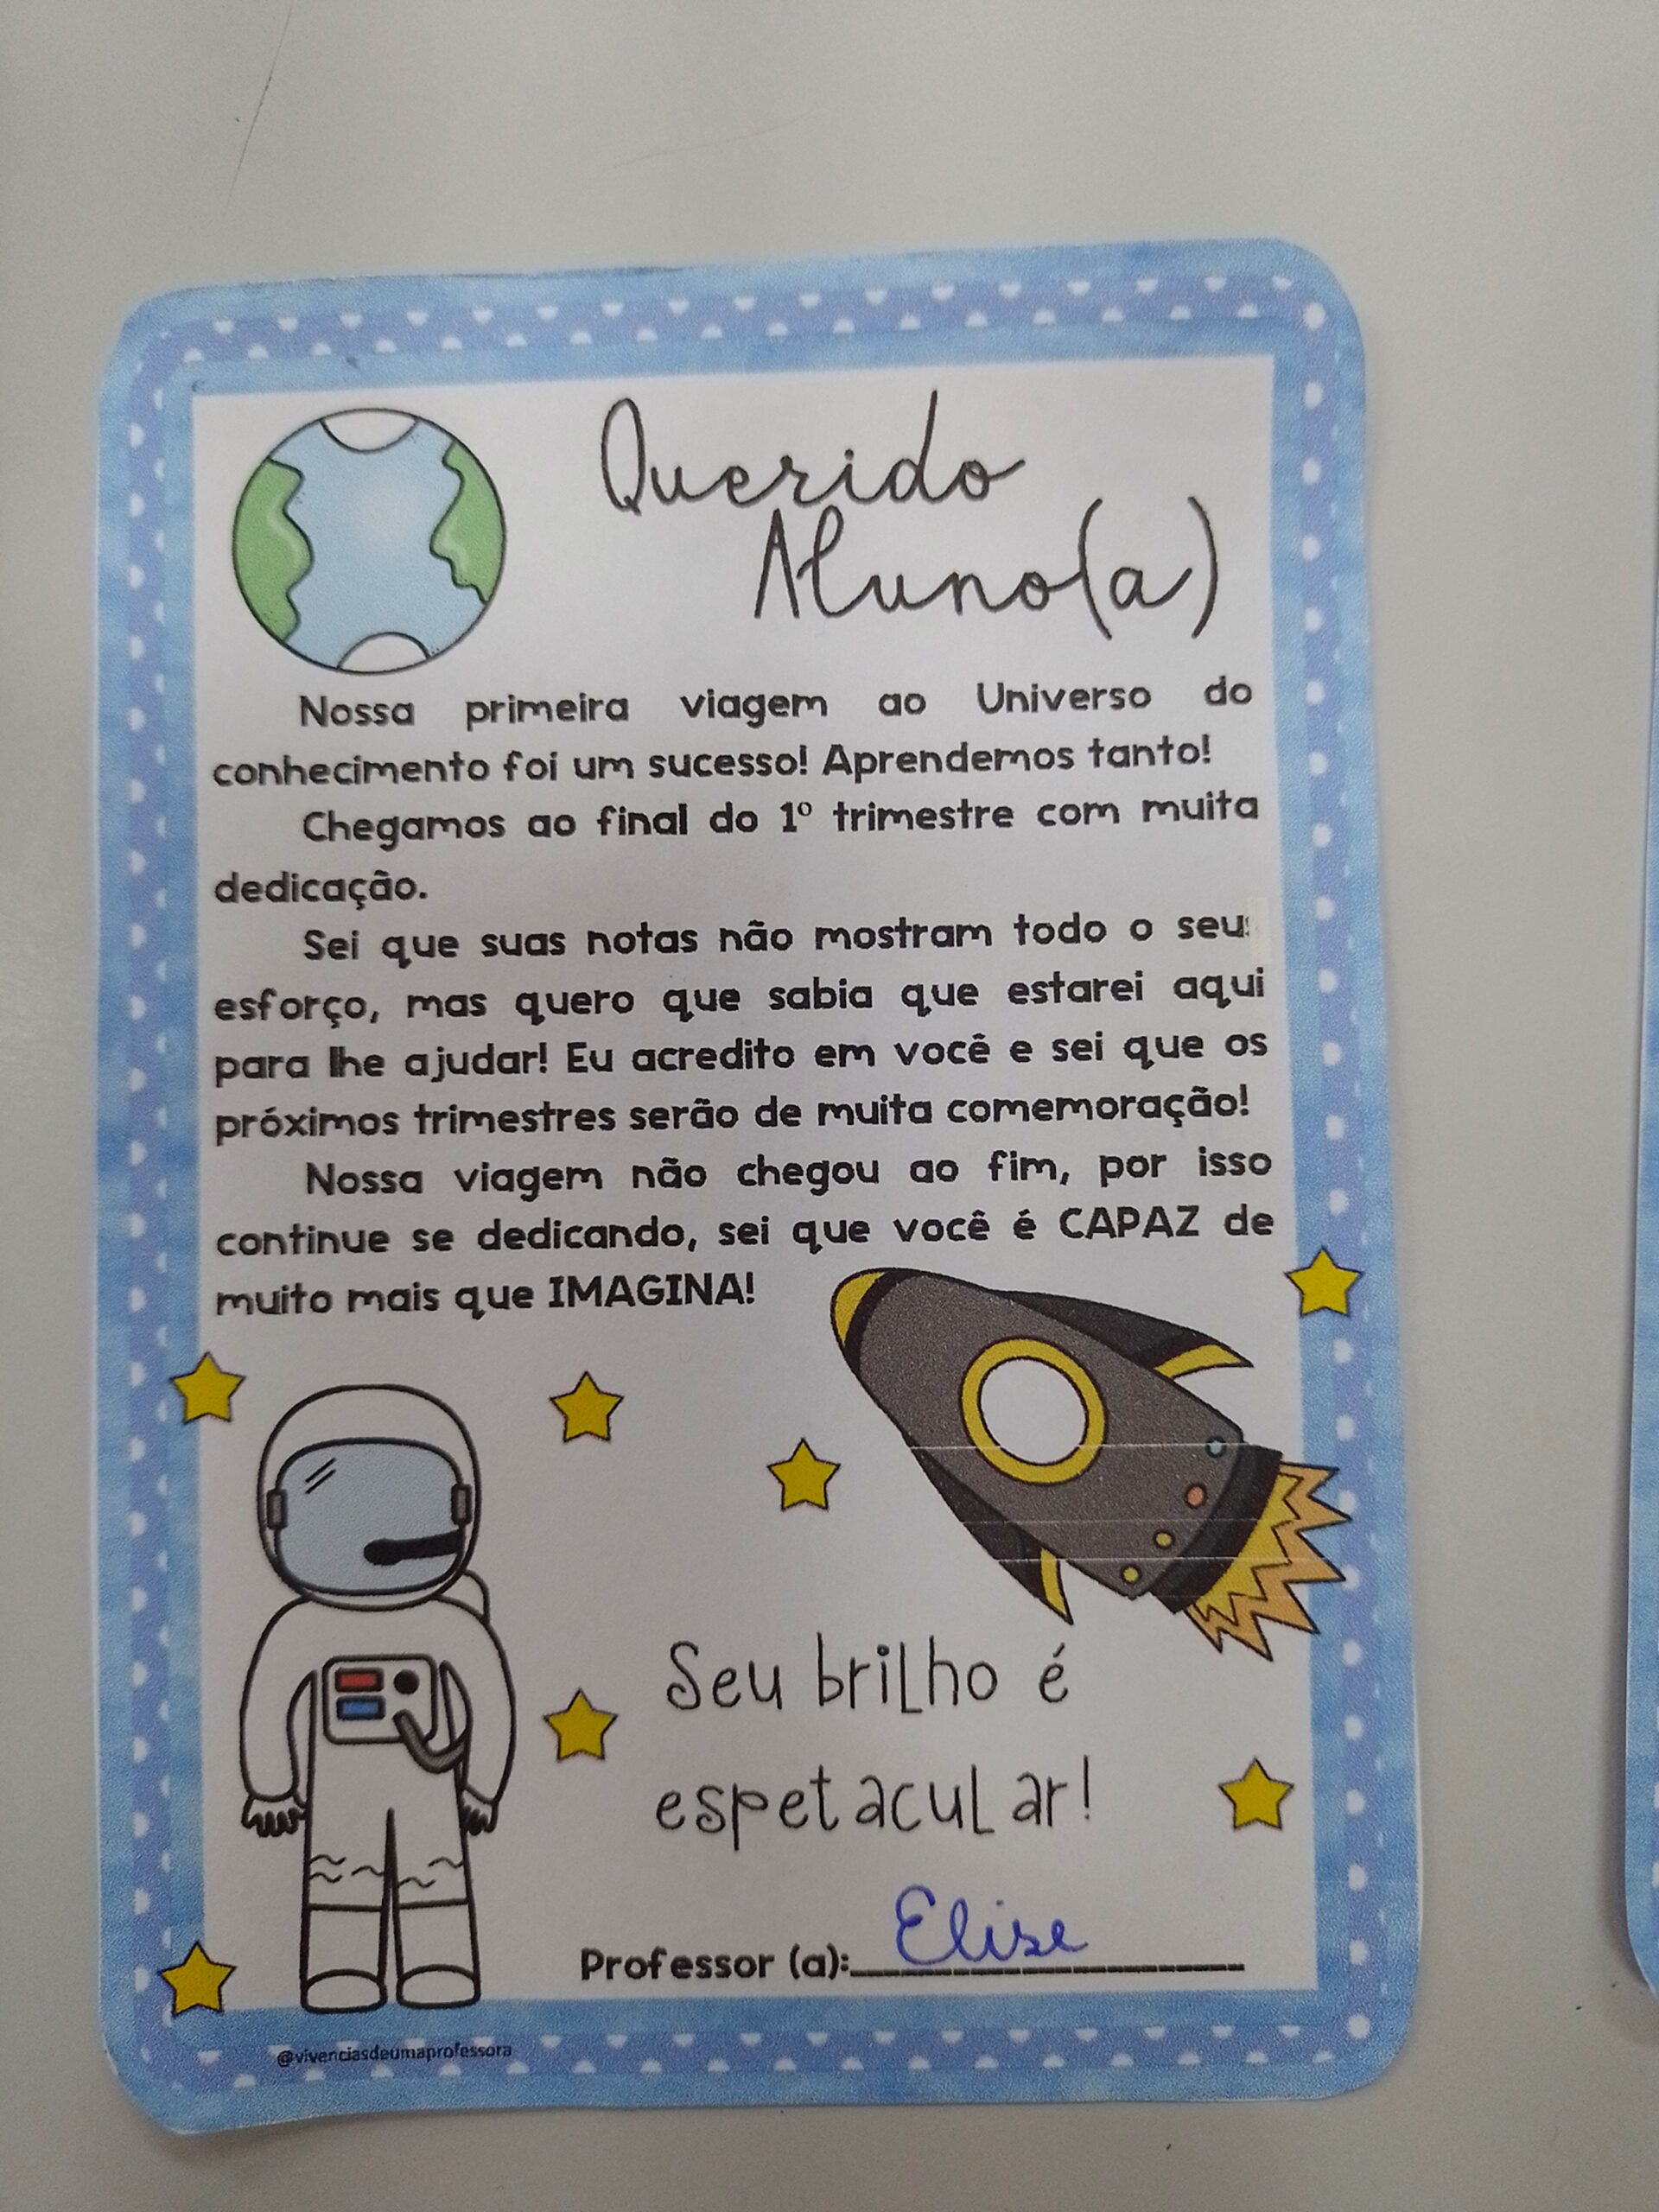 Querido
Aluno(a)
Nossa primeira viagem ao Universo do
conhecimento foi um sucesso! Aprendemos tanto!
Chegamos ao final do 1º trimestre com muita
dedicação.
Sei que suas notas não mostram todo o seu
esforço, mas quero que sabia que estarei aqui
para lhe ajudar! Eu acredito em você e sei que os
próximos trimestres serão de muita comemoração!
Nossa viagem não chegou ao fim, por isso
continue se dedicando, sei que você é CAPAZ de
muito mais que IMAGINA!
Seu brilho é
espetacular!
Professor (a): Elise
@vivenciasdeumaprofessora